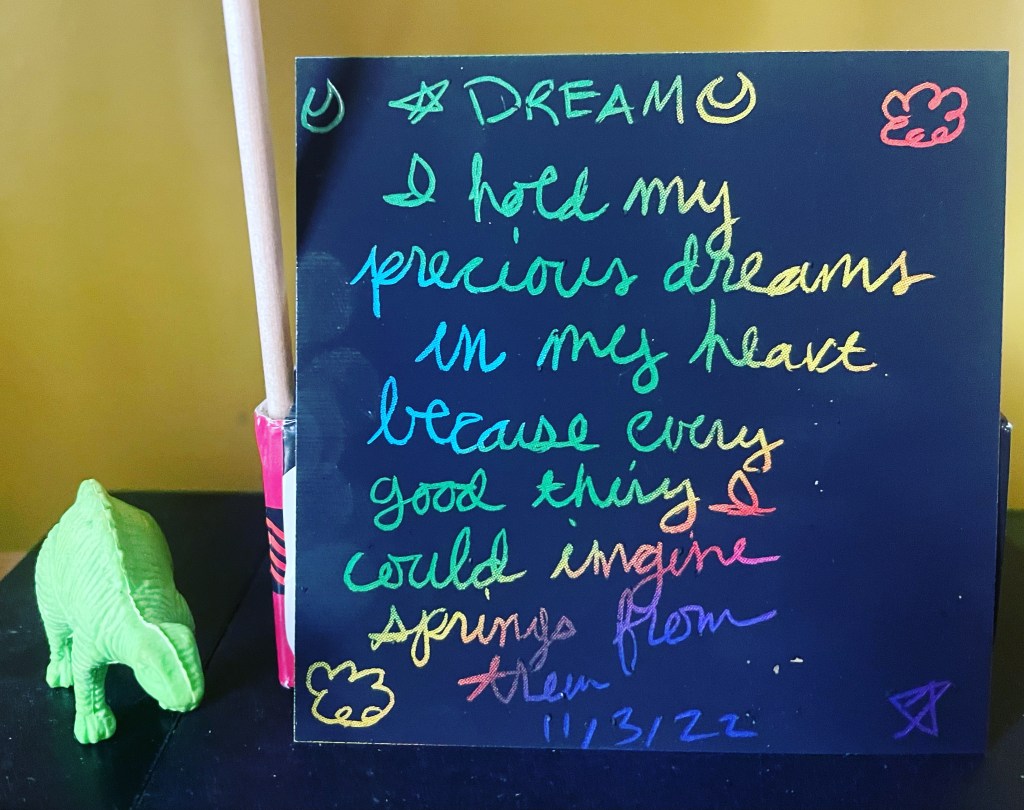 DREAM
I hold my
precious dreams
in my heart
because every
good thing I
could imgine
springs from
them
11/3/22